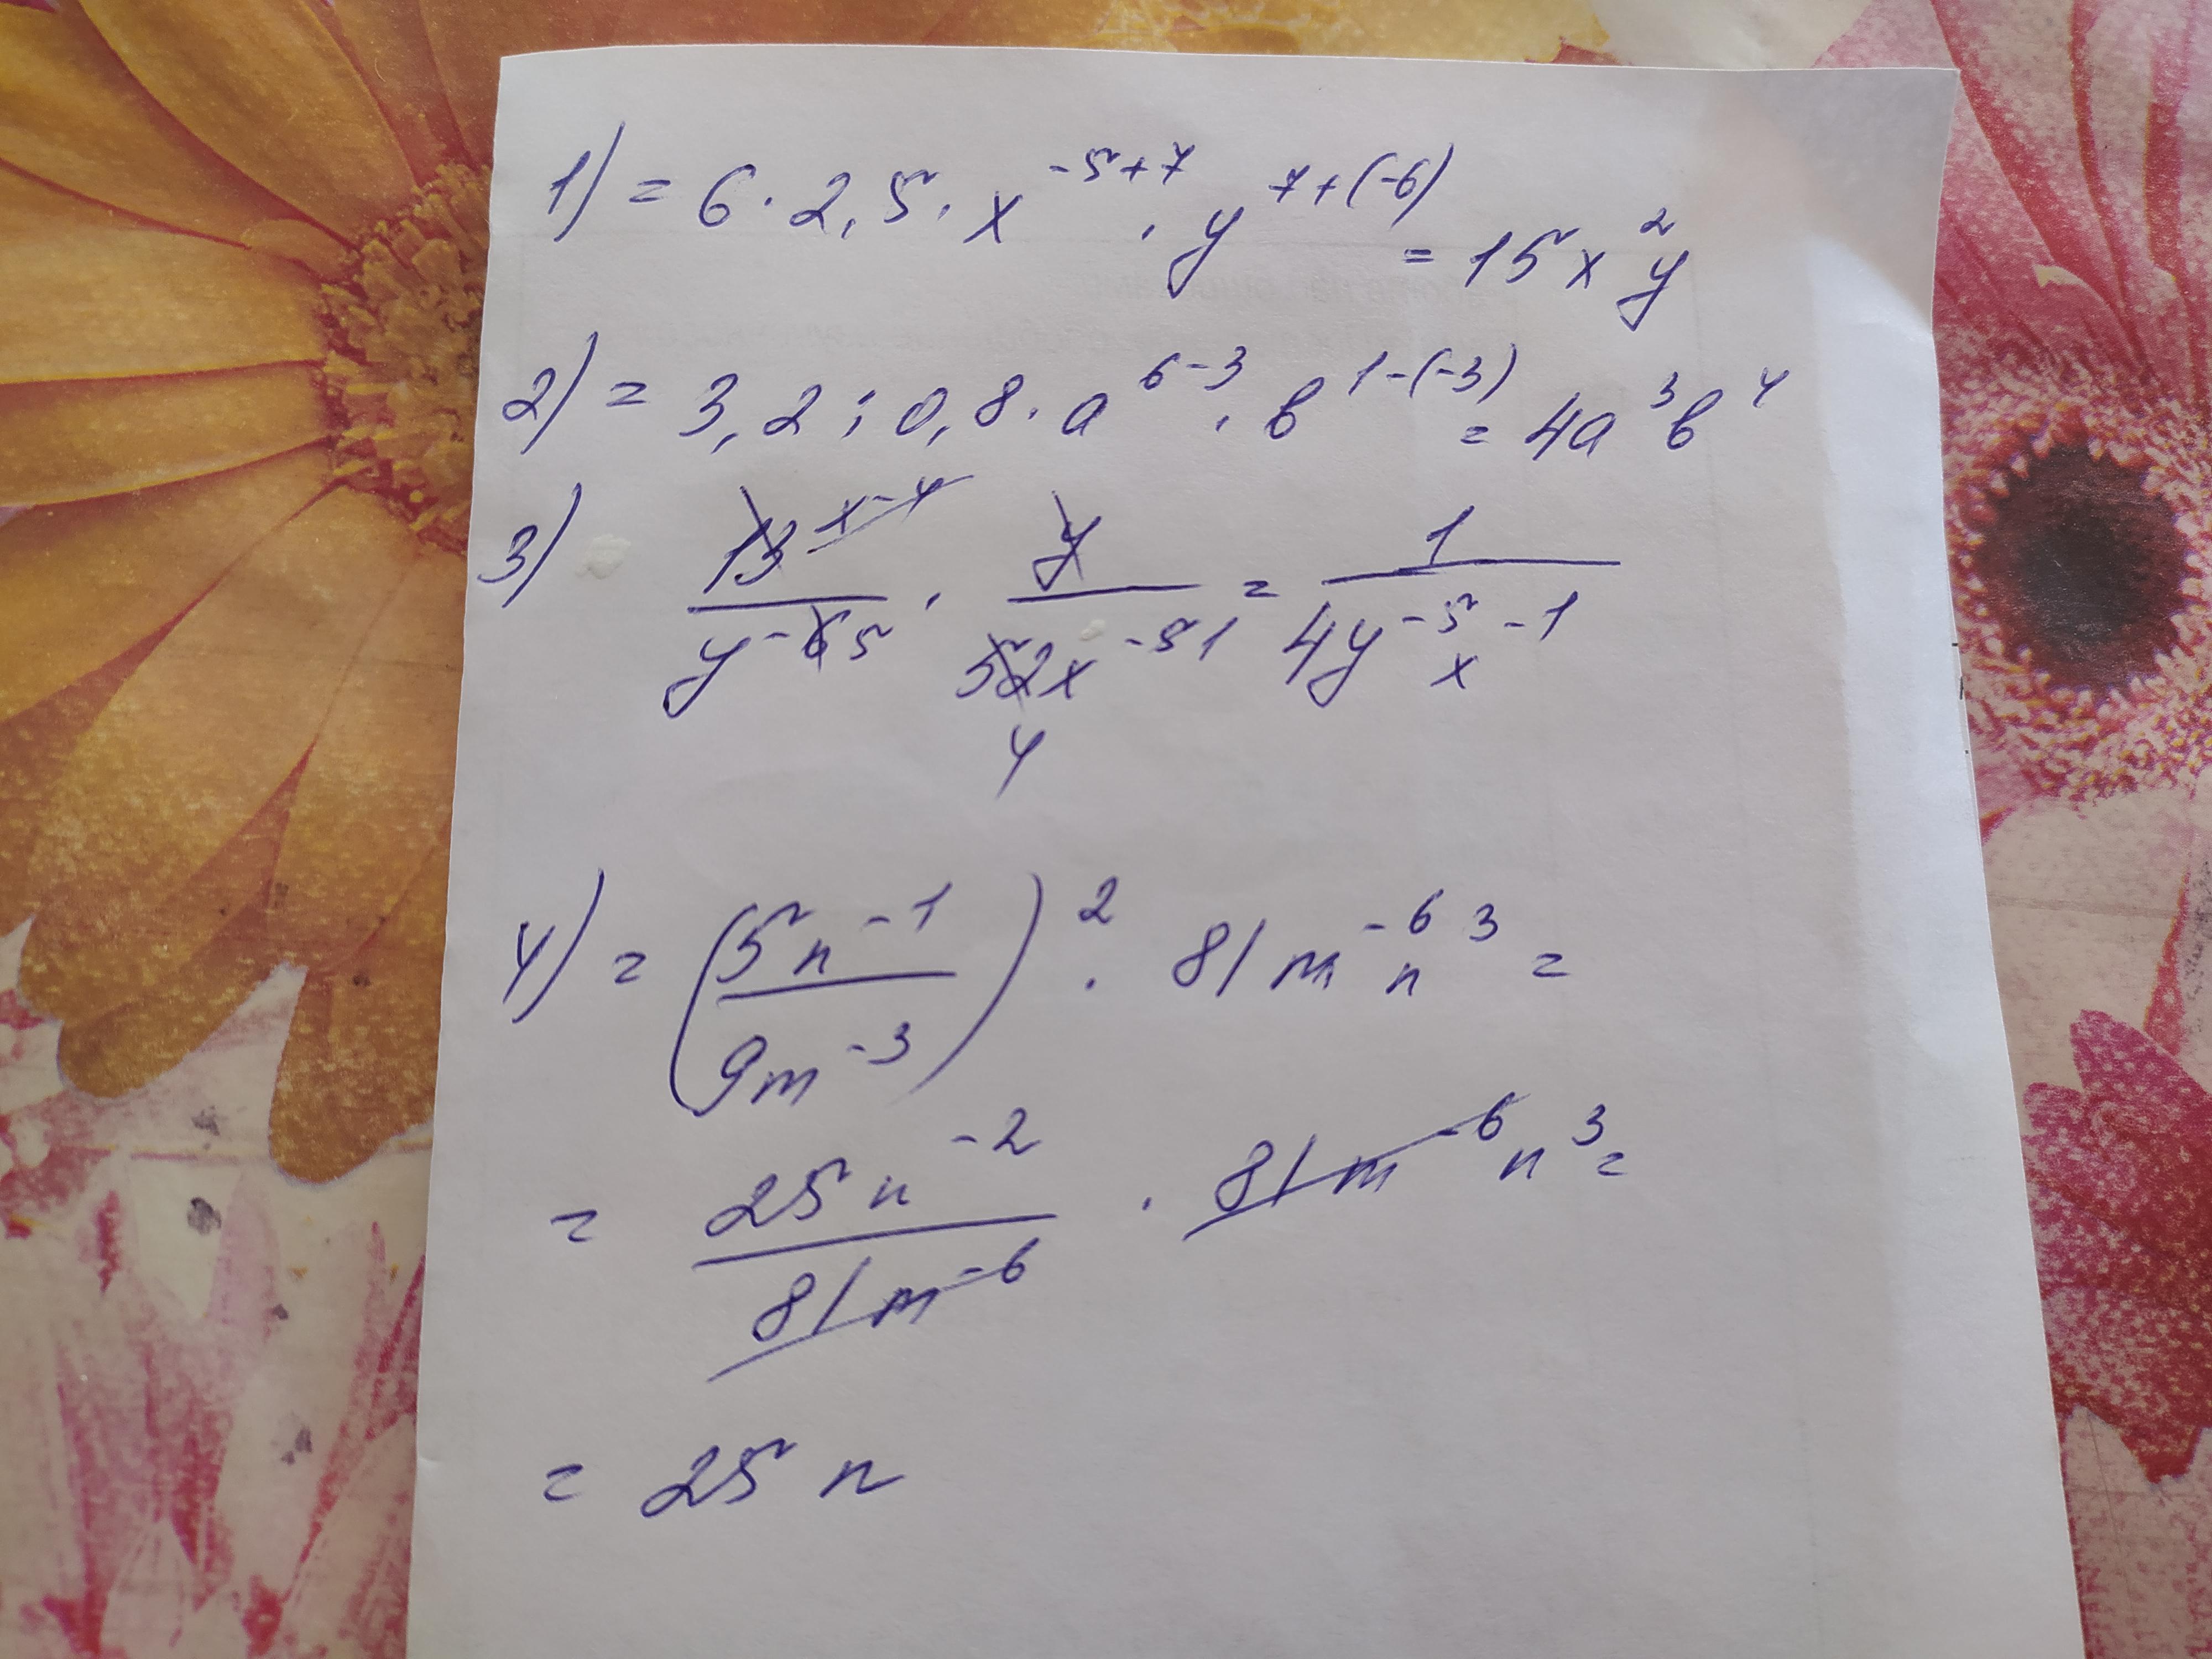 1) = 6 · 2,5 · x^{-5+7} · y^{7+(-6)} = 15x^2y
2) = 3,2 : 0,8 · a^{6-3} · b^{1-(-3)} = 4a^3b^4
3) \frac{13x^{-4}}{y^{-6 5}} · \frac{y}{52x^{-5 1}} = \frac{1}{4y^{-5}x^{-1}}
4
4) = (\frac{5n^{-1}}{9m^{-3}})^2 · 81m^{-6}n^3 =
= \frac{25n^{-2}}{81m^{-6}} · 81m^{-6}n^3 =
= 25n